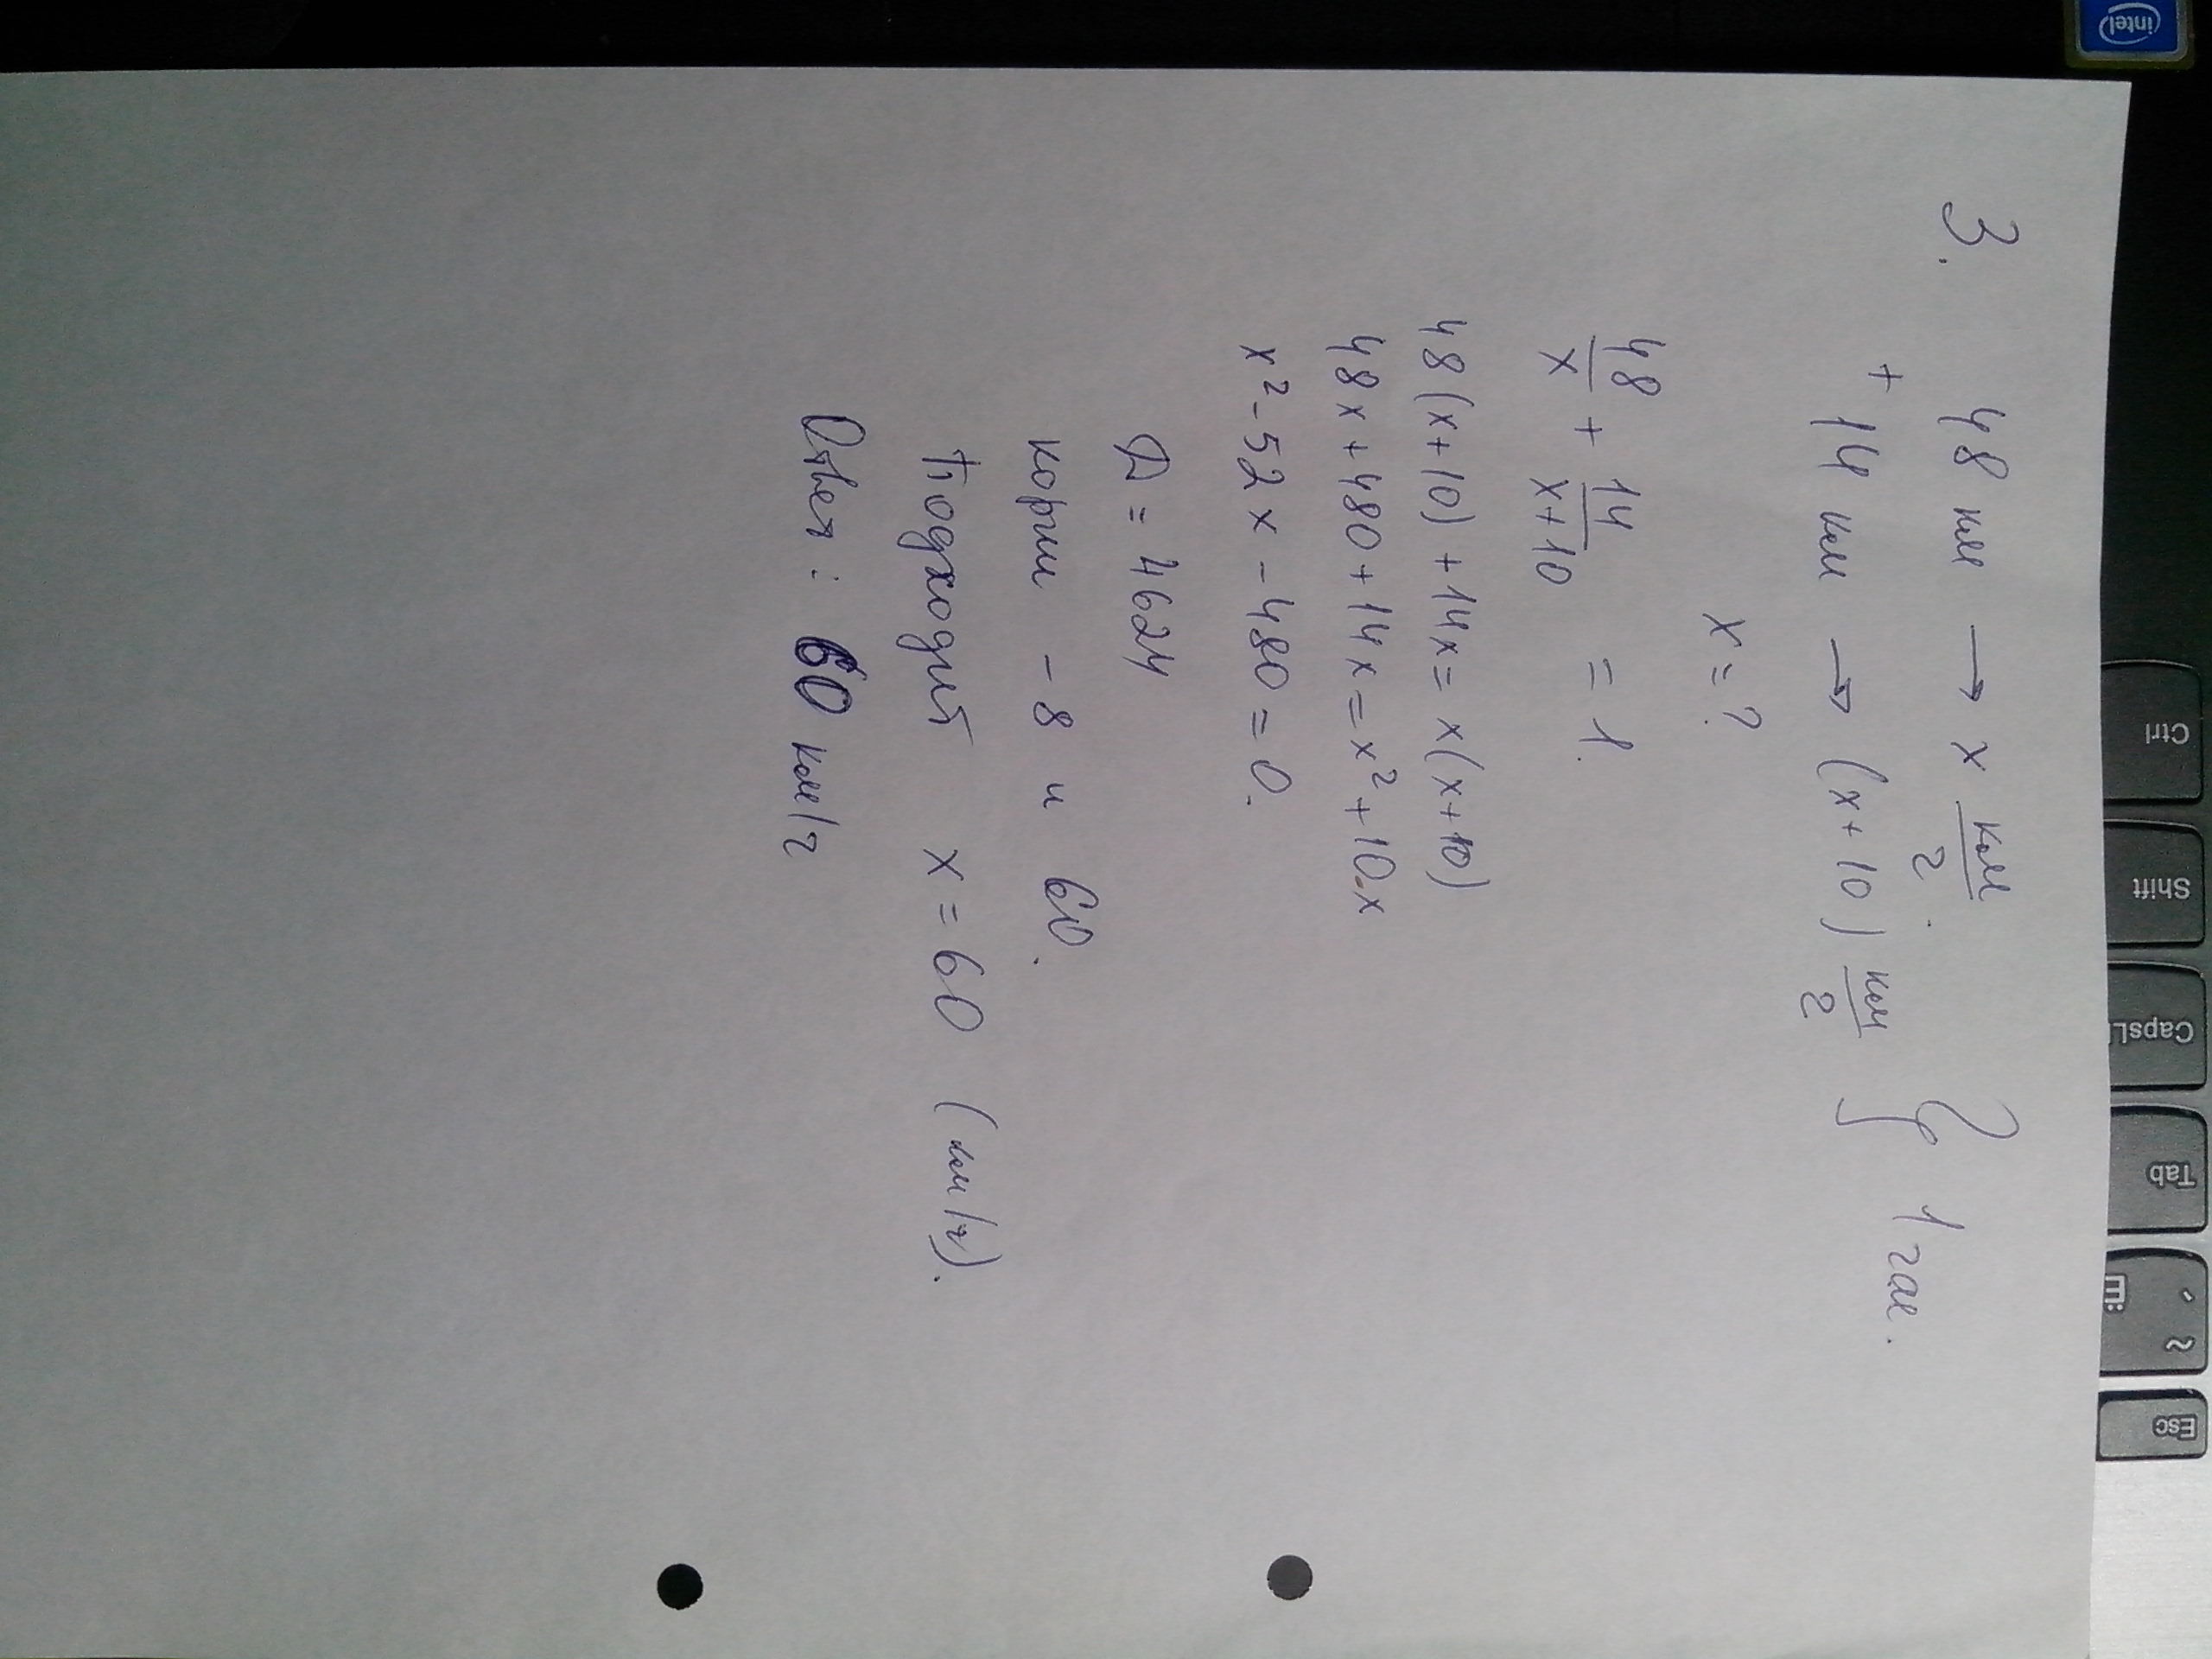 3. 48 км → x км/ч.
+ 14 км → (x+10) км/ч } 1 час.
x = ?
48/x + 14/(x+10) = 1.
48(x+10) + 14x = x(x+10)
48x + 480 + 14x = x² + 10·x
x² - 52x - 480 = 0.
Д = 4624
корни -8 и 60.
Подходит x = 60 (км/ч).
Ответ: 60 км/ч
intel
Ctrl
Shift
CapsL
Tab
~
Ё
Esc